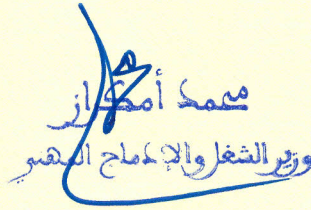 محمد أمكراز
وزير الشغل والإدماج المهني